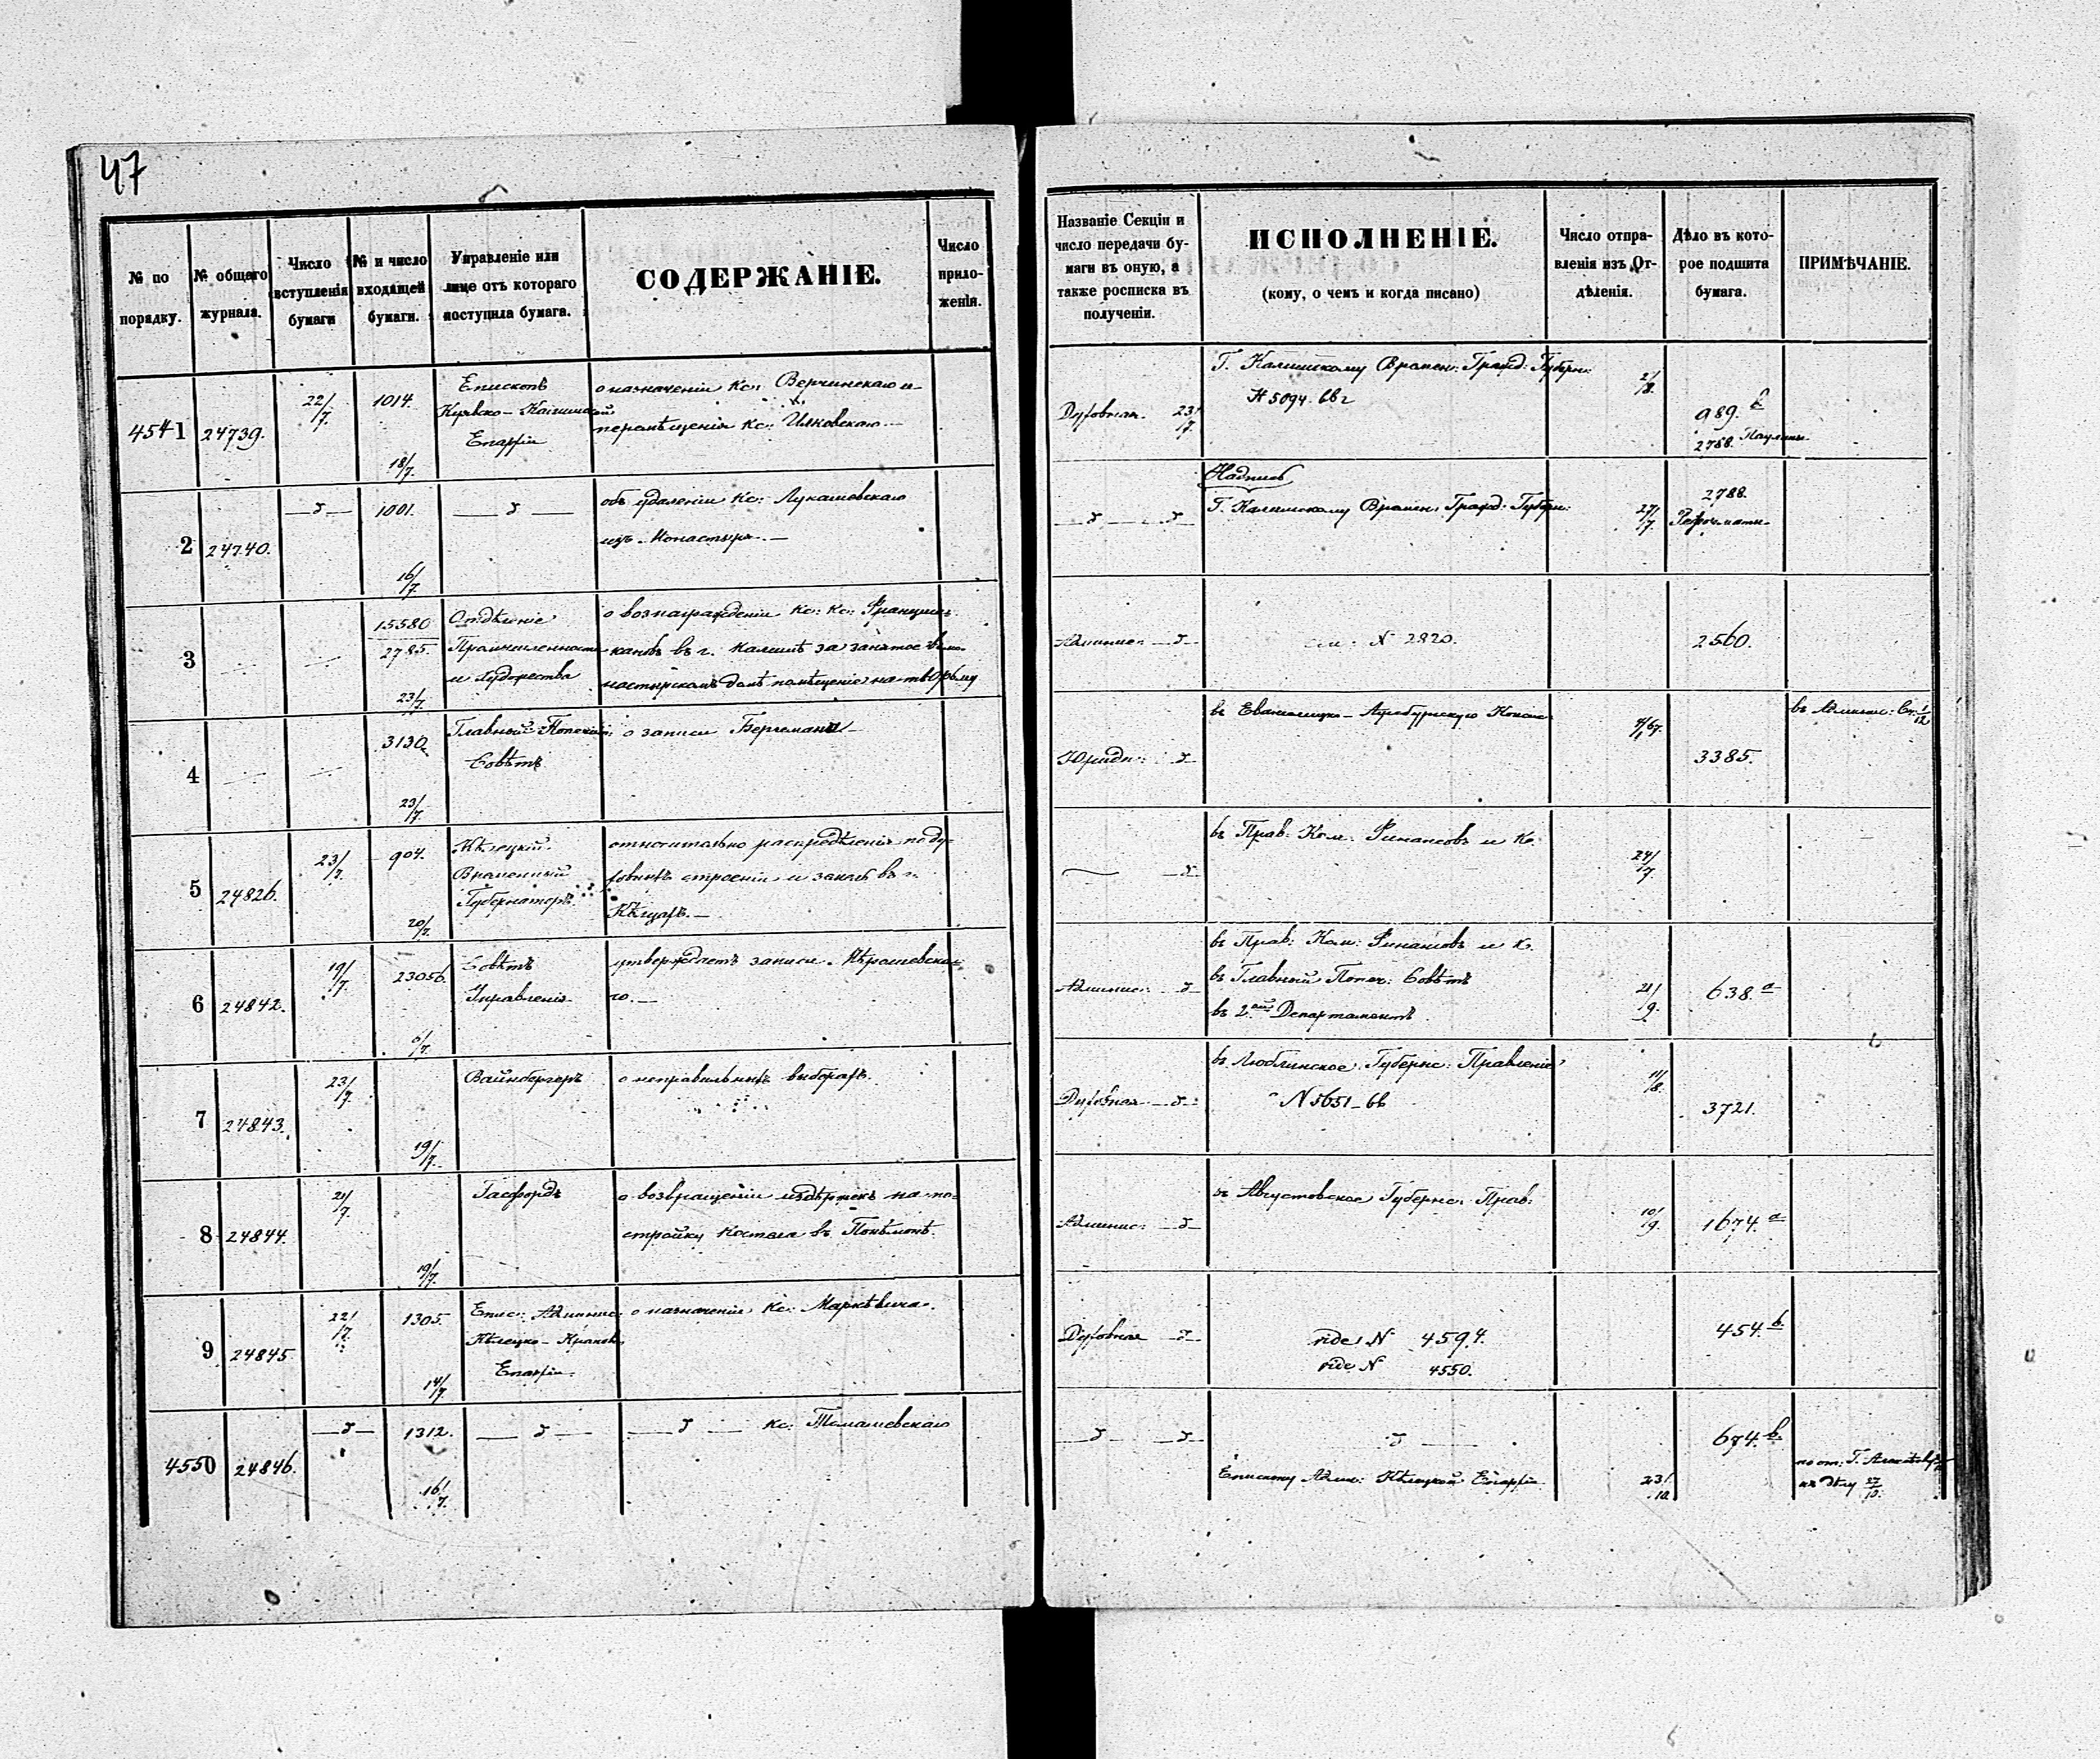 47
№ по порядку.
№ общаго журнала.
Число вступленія бумаги
№ и число входящей бумаги.
Управленіе или лице отъ котораго поступила бумага.
СОДЕРЖАНІЕ.
Число приложенія.
Названіе Секціи и число передачи бумаги въ оную, а также росписка въ полученіи.
ИСПОЛНЕНІЕ.
(кому, о чемъ и когда писано)
Число отправленія изъ Отдѣленія.
Дѣло въ которое подшита бумага.
ПРИМѢЧАНІЕ.
4541 24739. 22/7. 1014. 18/7.
Епископъ
Куявско-Калишской
Епархіи
о назначеніи Кс: Верчинскаго и
перемѣщенія Кс:
Духовная. 23/7.
Г. Калишскому Времен: Гражд: Губерн:
N 5094. 66 г
2/8.
989.
2788.
2 24740. 1001. 16/7.
объ удаленіи Кс: Лукашевскаго
изъ Монастыря.—
Надпись
Г. Калишскому Времен: Гражд: Губерн:
27/7.
2788.
3 15580 2785. 23/7.
Отдѣленіе
Промышленности
и Художества
о вознагражденіи Кс: Кс: Францис-
кановъ въ г. Калишѣ за занятое въ мо-
настырскомъ домѣ помѣщеніе на тюрьму
Админис:
см: N 2820.
2560.
4 3130. 23/7.
Главный Попечит:
Совѣтъ
о записи Бергемана
Юриди:
въ Евангелицко-Аугсбургскую Консис:
67.
3385.
въ Админис: 1/12
5 24826. 23/7. 904. 20/7.
Кѣлецкій
Временный
Губернаторъ.
относительно распредѣленія по ду-
ховныхъ строеніи и занят въ г.
Кѣльцахъ.—
въ Прав: Ком: Финансовъ и К:
24/7.
6 24842. 19/7. 23056. 6/7.
Совѣтъ
Управленія
утверждаетъ записи
го.—
Админис:
въ Прав: Ком: Финансовъ и К.
въ Главный Попеч: Совѣтъ
въ 2ой Департаментъ
21/9.
638.a
7 24843. 23/7. 19/7.
Вайнбергеръ
о неправильныхъ выборахъ.
Духовная
въ Люблинское Губернс: Правленіе
N 5651-66
11/8.
3721.
8 24844. 21/7. 19/7.
Гасфордъ
о возвращеніи издержекъ на по-
стройку Костела въ Понѣмонѣ.
Админис:
въ Августовское Губернс: Прав:
10/9.
1674.a
9 24845 22/7. 1305. 14/7.
Епис: Админис:
Кѣлецко-Краков:
Епархіи.
о назначеніи Кс: Маркѣвича.
Духовная
vide N 4594.
vide N 4550.
454.b
4550 24846. 1312. 16/7.
Кс: Томашевскаго
Епископу Адми: Кѣлецкой Епархіи
23/10.
674.b.
къ дѣлу 27/10.